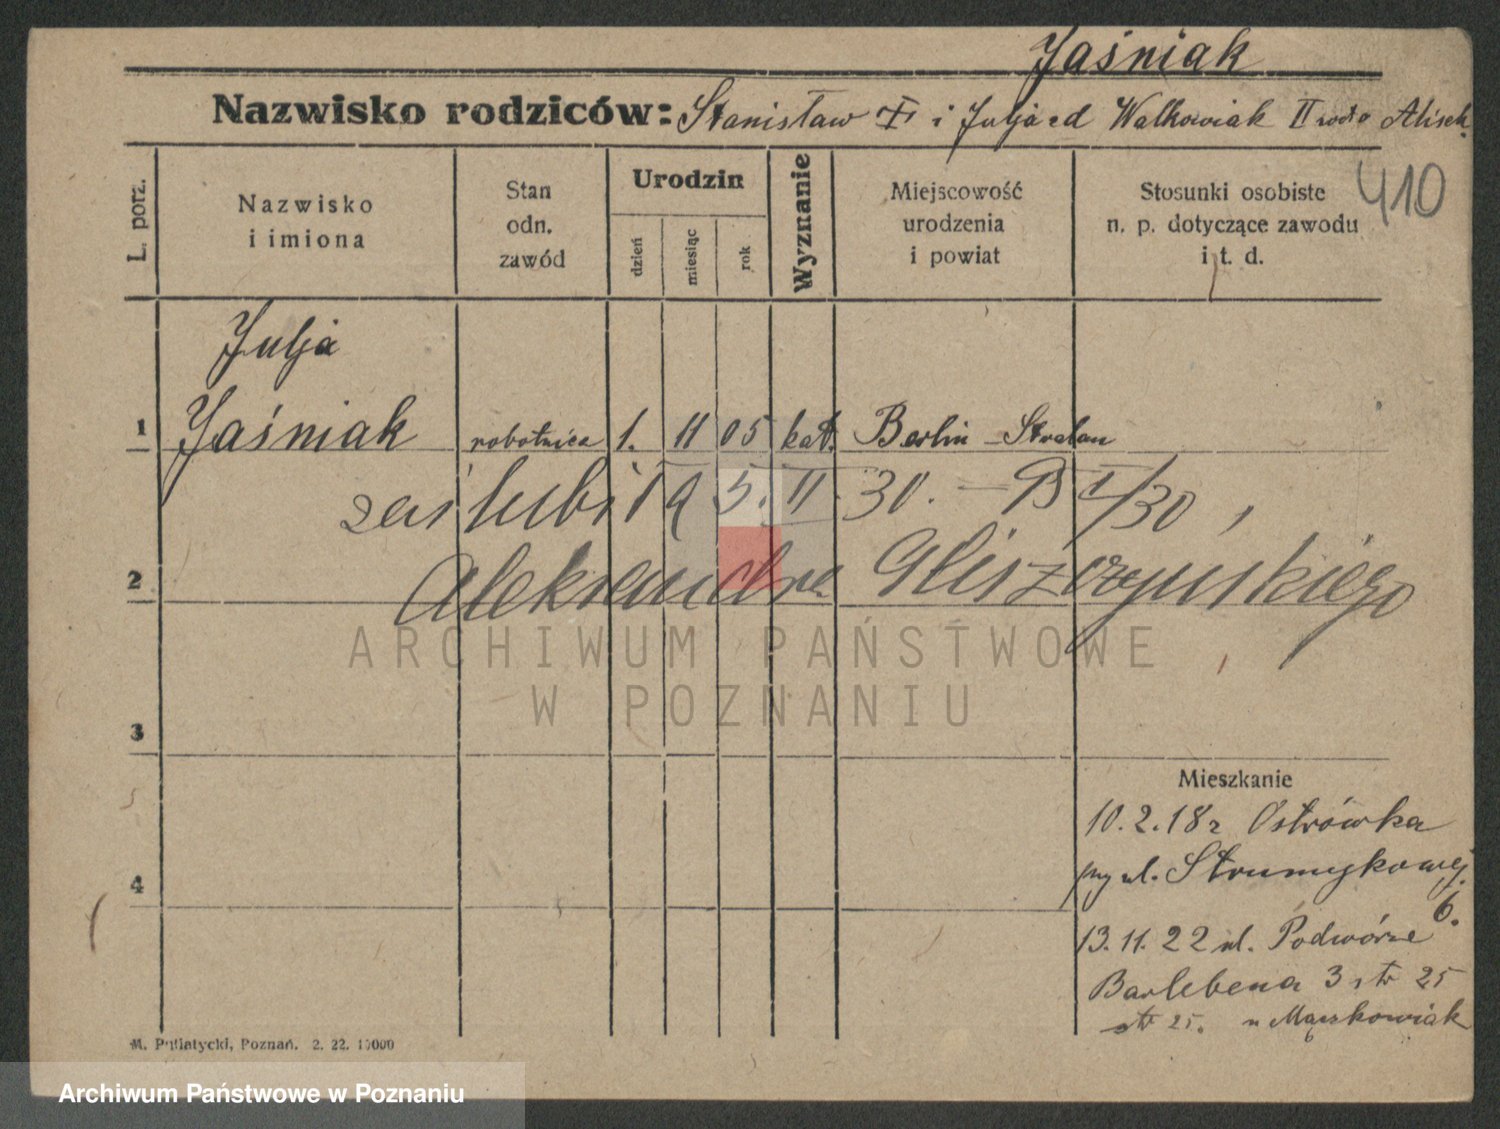 Jaśniak
Nazwisko rodziców: Stanisław i Julja zd Walkowiak II
410
L. porz.
Nazwisko i imiona
Stan odn. zawód
Urodzin
dzień
miesiąc
rok
Wyznanie
Miejscowość urodzenia i powiat
Stosunki osobiste n. p. dotyczące zawodu i t. d.
Julja
1 Jaśniak robotnica 1. 11 05 kat. Berlin - Stralau
zaślubiła 5. II 30. - B I/30,
2 Aleksandra Gliszczyńskiego
3
4
Mieszkanie
10.2.18 r Ostrówka
przy ul. Strumykowej
6.
13.11.22 ul. Podwórze
Barlebena 3 str 25
str 25. u
M. Putiatycki, Poznań. 2. 22. 10000
ARCHIWUM PAŃSTWOWE
W POZNANIU
Archiwum Państwowe w Poznaniu